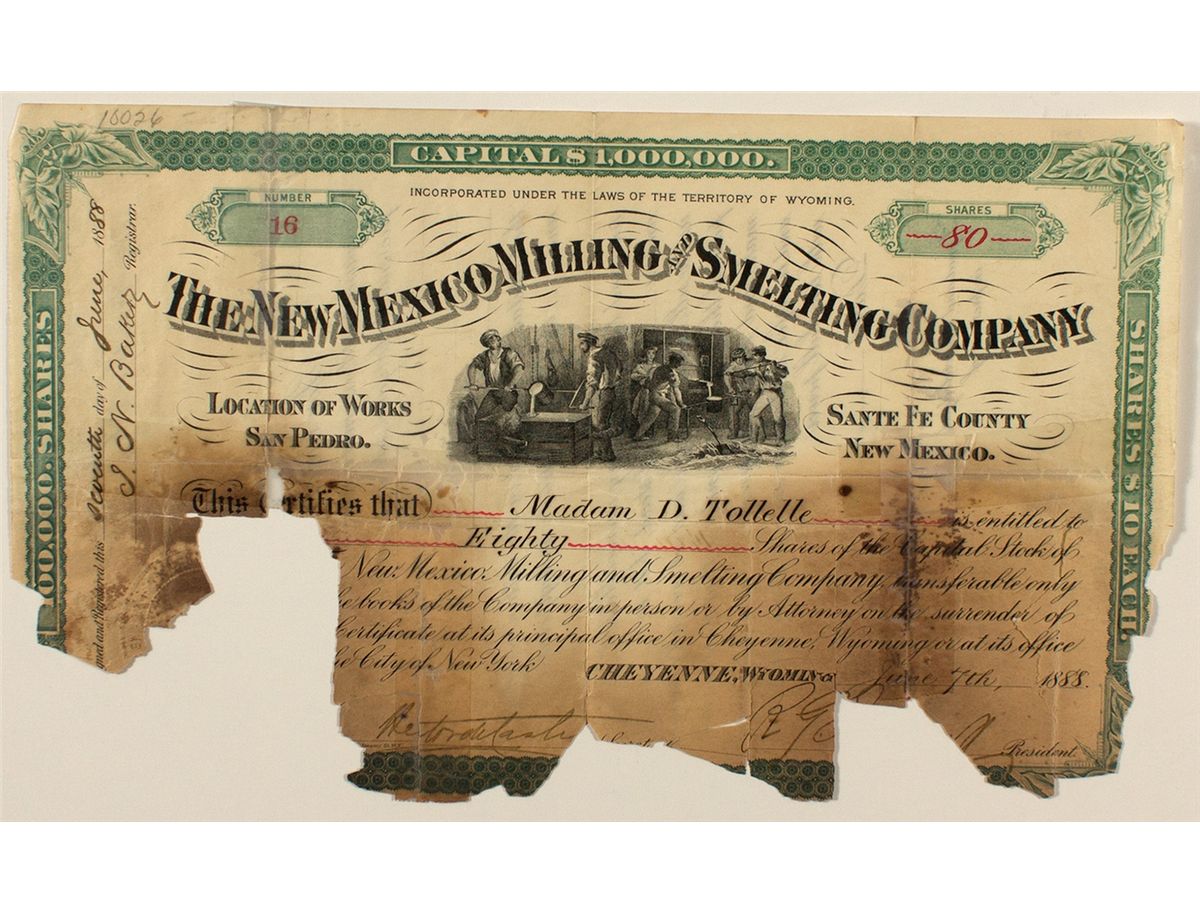 10026
CAPITAL $1,000,000.
INCORPORATED UNDER THE LAWS OF THE TERRITORY OF WYOMING.
NUMBER
16
SHARES
80
THE NEW MEXICO MILLING AND SMELTING COMPANY
LOCATION OF WORKS
SAN PEDRO.
SANTE FE COUNTY
NEW MEXICO.
This Certifies that Madam D. Tollelle is entitled to
Eighty Shares of the Capital Stock of
New Mexico Milling and Smelting Company, transferable only
books of the Company in person or by Attorney on the surrender of
Certificate at its principal office in Cheyenne, Wyoming or at its office
City of New York CHEYENNE, WYOMING June 7th, 1888.
President.
00,000. SHARES
and Registered this seventh day of June, 1888
S. N. Baker
Registrar.
SHARES $10 EACH